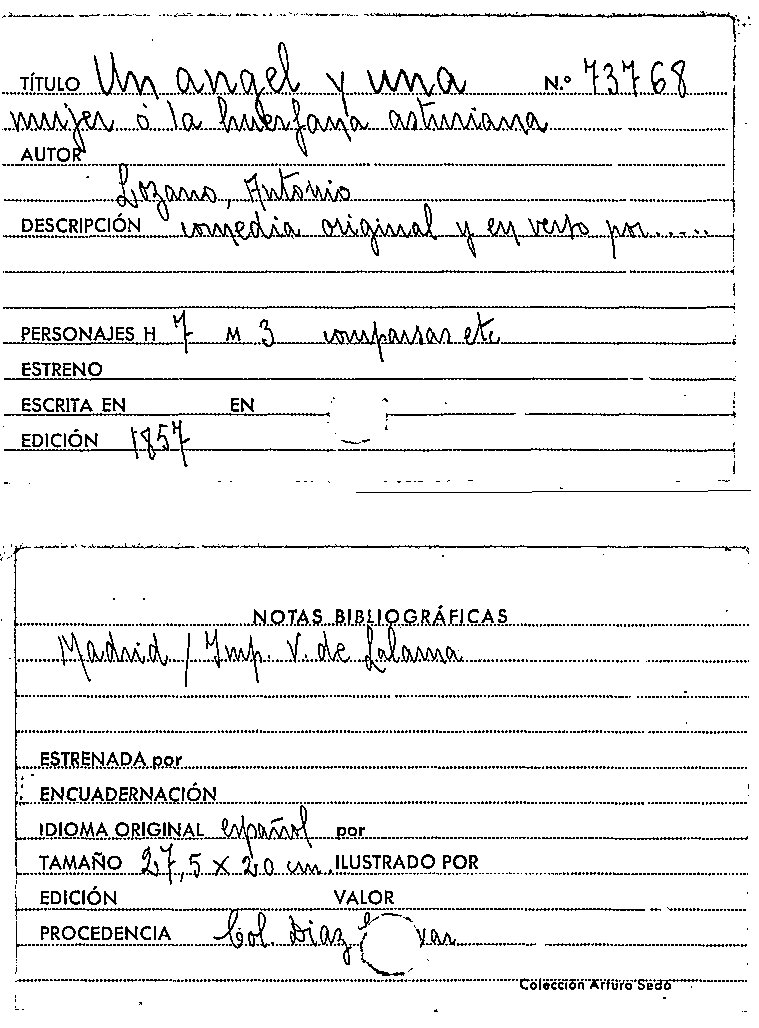 TÍTULO Un angel y una N.º 73768
mujer ó la huerfana asturiana
AUTOR
Lozano, Antonio
DESCRIPCIÓN comedia original y en verso por......
PERSONAJES H 7 M 3 comparsas etc
ESTRENO
ESCRITA EN EN
EDICIÓN 1857
NOTAS BIBLIOGRÁFICAS
Madrid / Imp. V. de Lalama
ESTRENADA por
ENCUADERNACIÓN
IDIOMA ORIGINAL español por
TAMAÑO 27,5 x 20 cm. ILUSTRADO POR
EDICIÓN VALOR
PROCEDENCIA Col. Diaz
Colección Arturo Sedó